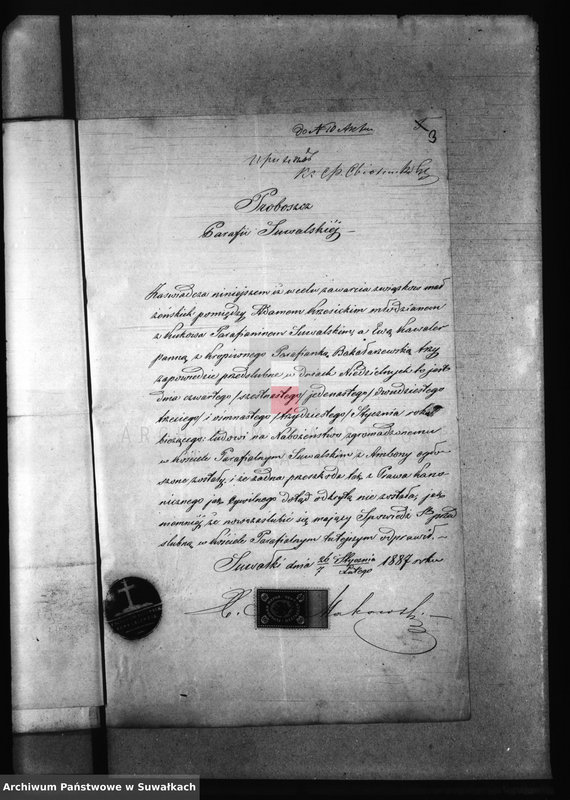 Do N 10 Aktu
3
Proboszcz
Parafii Suwalskiéj
Zaświadcza niniejszem iż w celu zawarcia związków mał
żeńskich pomiędzy Adamem młodzianem
z Kukowa Parafianinem Suwalskim, a Ewą Kawaler
panną z Kropiwnego Parafianką Bakałarzewską trzy
zapowiedzie przedślubne w dniach Niedzielnych to jest
dnia czwartego /szesnastego/ jedenastego /dwudziestego
trzeciego/ i ośmnastego /trzydziestego/ Stycznia roku
bieżącego: ludowi na Nabożeństwo zgromadzonemu
w kościele Parafialnym Suwalskim z Ambony ogło
szone zostały, i że żadna przeszkoda tak z Prawa kano
nicznego jak cywilnego dotąd odkrytą nie została, jak
niemniéj że nowozaślubić się mający Spowiedź Sq przed
ślubną w kościele Parafialnym tutejszym odprawił.—
Suwałki dnia 26/7 Stycznia/Lutego 1887 roku
Makowski
Archiwum Państwowe w Suwałkach